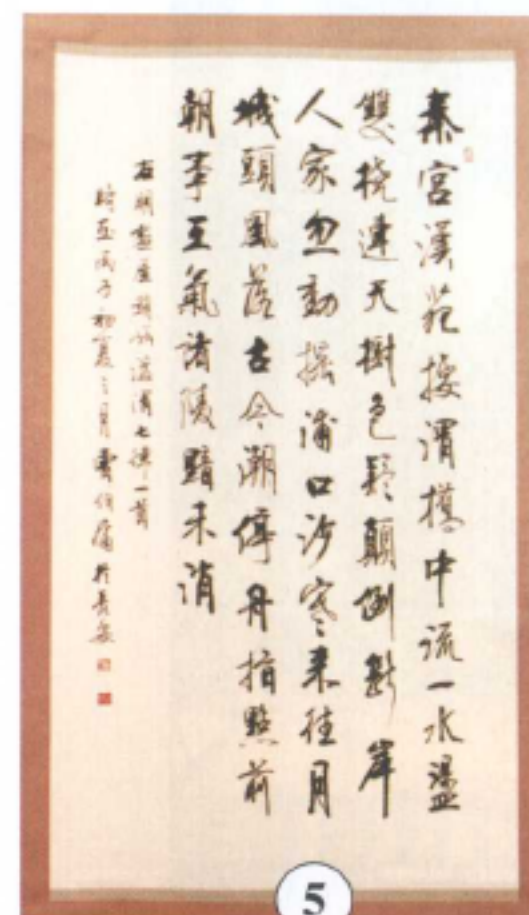 秦宮漢苑接渭橋中流一水盪
雙橈連天樹色疑顛倒斷岸
人家忽動搖浦口沙寒來往月
城頭風落古今潮停舟指點前
朝事王氣諸陵黯未消
右明 泛渭七律一首
時 丙子初夏之月 於長安
5